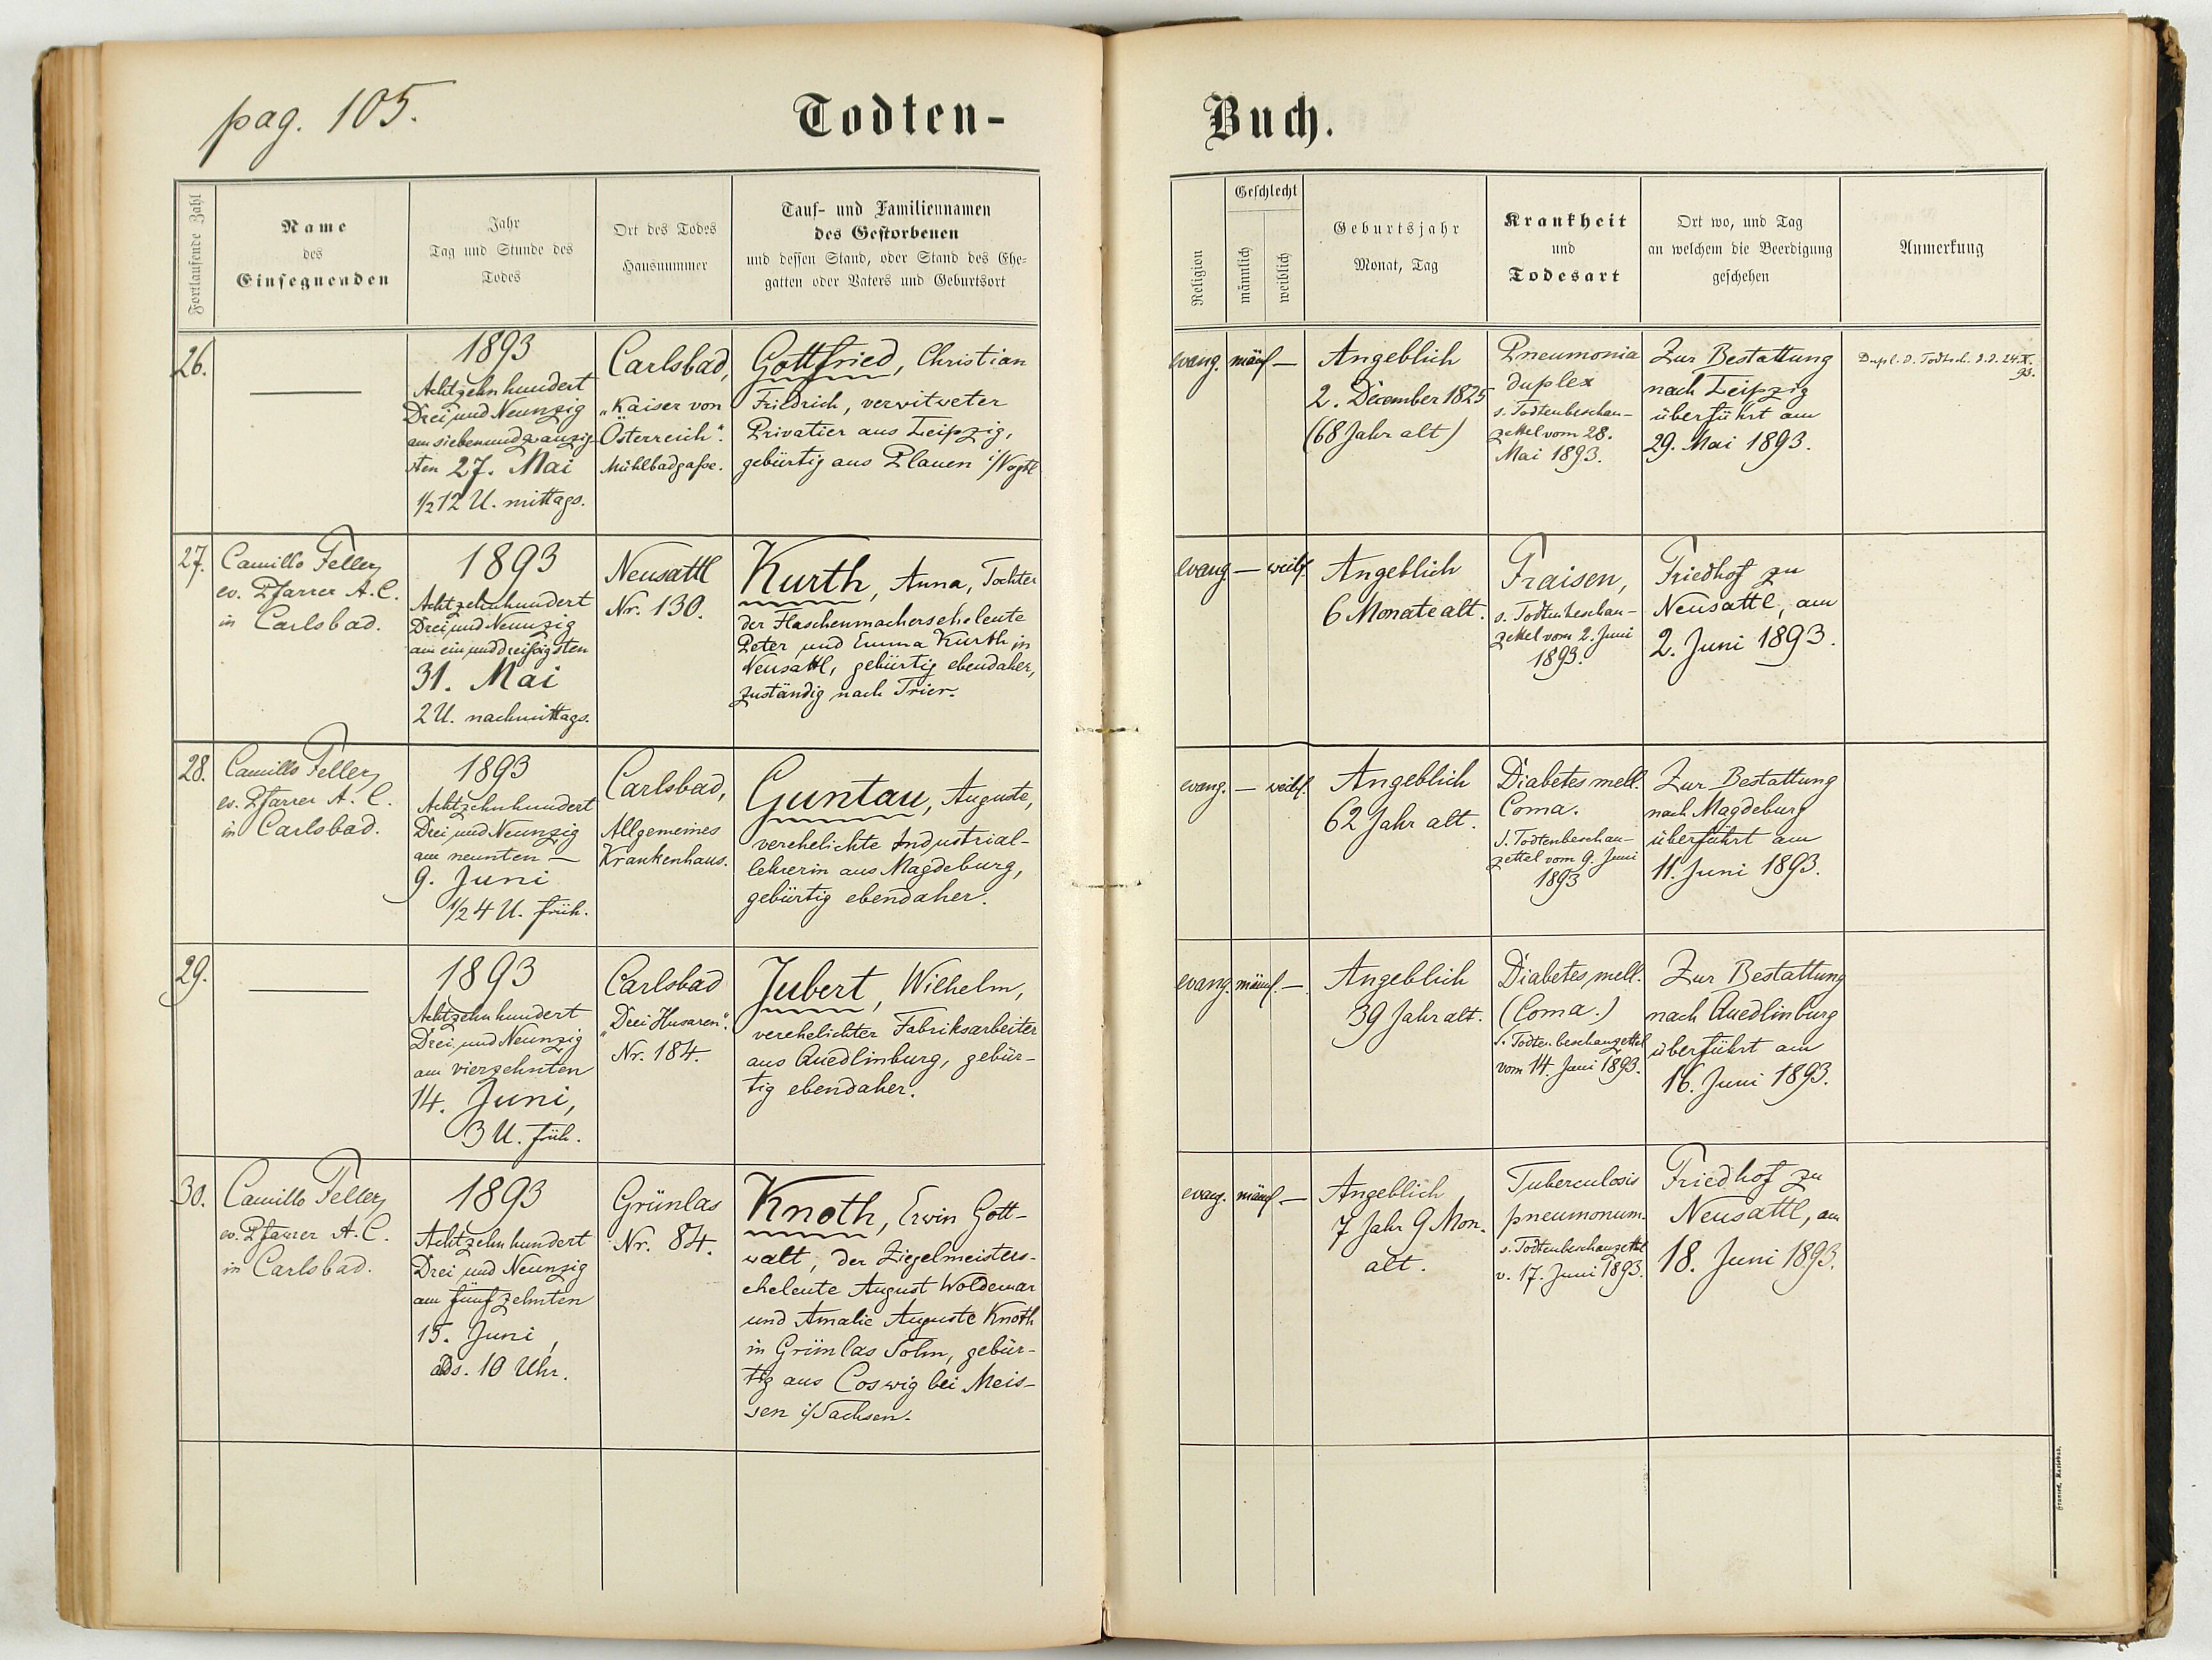 pag. 105.
Todten-
Buch.
Fortlaufende Zahl
Name
des
Einsegnenden
Jahr
Tag und Stunde des
Todes
Ort des Todes
Hausnummer
Tauf- und Familiennamen
des Gestorbenen
und dessen Stand, oder Stand des Ehe-
gatten oder Vaters und Geburtsort
Religion
Geschlecht
männlich
weiblich
Geburtsjahr
Monat, Tag
Krankheit
und
Todesart
Ort wo, und Tag
an welchem die Beerdigung
geschehen
Anmerkung
26.
1893
Achtzehnhundert
Drei und Neunzig
am siebenundzwanzig-
sten 27. Mai
1/2 12 U. mittags.
Carlsbad,
„Kaiser von
Österreich“.
Mühlbadgasse.
Gottfried, Christian
Friedrich, verwitweter
Privatier aus Leipzig,
gebürtig aus Plauen i/Vogtl
evang.
männl.
—
Angeblich
2. December 1825
(68 Jahr alt)
Pneumonia
duplex
s. Todtenbeschau-
zettel vom 28.
Mai 1893.
Zur Bestattung
nach Leipzig
überführt am
29. Mai 1893.
Dupl. d. Todtsch. d.d. 24.X.
93.
27.
Camillo Feller,
ev. Pfarrer A. C.
in Carlsbad.
1893
Achtzehnhundert
Drei und Neunzig
am ein und dreißigsten
31. Mai
2 U. nachmittags.
Neusattl
Nr. 130.
Kurth, Anna, Tochter
der Flaschenmacherseheleute
Peter und Emma Kurth in
Neusattl, gebürtig ebendaher,
zuständig nach Trier.
evang.
—
weibl.
Angeblich
6 Monate alt.
Fraisen,
s. Todtenbeschau-
zettel vom 2. Juni
1893.
Friedhof zu
Neusattl, am
2. Juni 1893.
28.
Camillo Feller,
ev. Pfarrer A. C.
in Carlsbad.
1893
Achtzehnhundert
Drei und Neunzig
am neunten —
9. Juni
1/2 4 U. früh.
Carlsbad,
Allgemeines
Krankenhaus.
Guntau, Auguste,
verehelichte Industrial-
lehrerin aus Magdeburg,
gebürtig ebendaher.
evang.
—
weibl.
Angeblich
62 Jahr alt.
Diabetes mell.
Coma.
s. Todtenbeschau-
zettel vom 9. Juni
1893
Zur Bestattung
nach Magdeburg
überführt am
11. Juni 1893.
29.
1893
Achtzehnhundert
Drei und Neunzig
am vierzehnten
14. Juni,
3 U. früh.
Carlsbad
„Drei Husaren“.
Nr. 184.
Jubert, Wilhelm,
verehelichter Fabriksarbeiter
aus Quedlinburg, gebür-
tig ebendaher.
evang.
männl.
—
Angeblich
39 Jahr alt.
Diabetes mell.
(Coma.)
s. Todtenbeschauzettel
vom 14. Juni 1893.
Zur Bestattung
nach Quedlinburg
überführt am
16. Juni 1893.
30.
Camillo Feller,
ev. Pfarrer A. C.
in Carlsbad.
1893
Achtzehnhundert
Drei und Neunzig
am fünfzehnten
15. Juni,
abds. 10 Uhr.
Grünlas
Nr. 84.
Knoth, Erwin Gott-
walt, der Ziegelmeisters-
eheleute August Woldemar
und Amalie Auguste Knoth
in Grünlas Sohn, gebür-
tig aus Coswig bei Meis-
sen i/Sachsen.
evang.
männl.
—
Angeblich
7 Jahr 9 Mon.
alt.
Tuberculosis
pneumonum.
s. Todtenbeschauzettel
v. 17. Juni 1893.
Friedhof zu
Neusattl, am
18. Juni 1893.